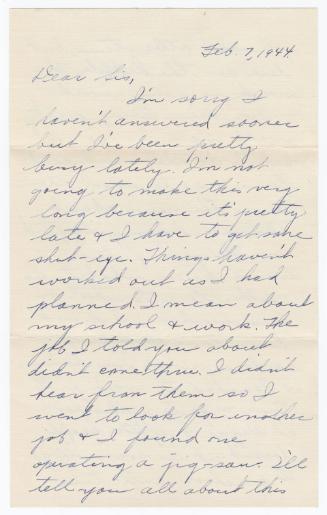 Feb. 7, 1944
Dear Sis,
I'm sorry I
haven't answered sooner
but I've been pretty
busy lately. I'm not
going to make this very
long because it's pretty
late & I have to get some
shut-eye. Things haven't
worked out as I had
planned. I mean about
my school & work. The
job I told you about
didn't come thru. I didn't
hear from them so I
went to look for another
job & I found one
operating a jig-saw. I'll
tell you all about this